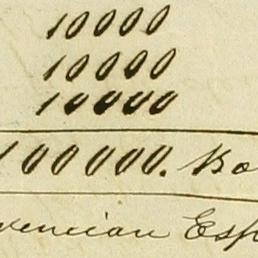 10000
10000
10000
100000. Bo
vencian Esp